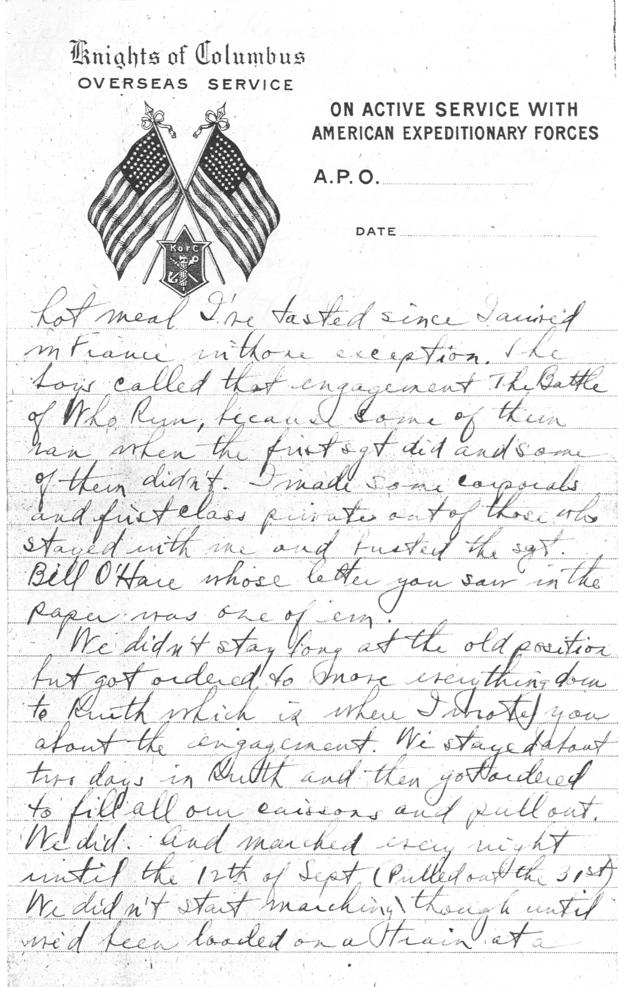 Knights of Columbus
OVERSEAS SERVICE
ON ACTIVE SERVICE WITH
AMERICAN EXPEDITIONARY FORCES
A.P.O.
DATE
K of C
hot meal I've tasted since I arrived
in France without exception. The
boys called that engagement The Battle
of Who Run, because some of them
ran when the first sgt did and some
of them didn't. I made some corporals
and first class privates out of those who
stayed with me and busted the sgt.
Bill O'Hare whose letter you saw in the
paper was one of 'em.
We didn't stay long at the old position
but got ordered to move everything down
to Kruth which is where I wrote you
about the engagement. We stayed about
two days in Kruth and then got ordered
to fill all our caissons and pull out.
We did. And marched every night
until the 12th of Sept (Pulled out the 31st)
We didn't start marching though until
we'd been loaded on a train at a